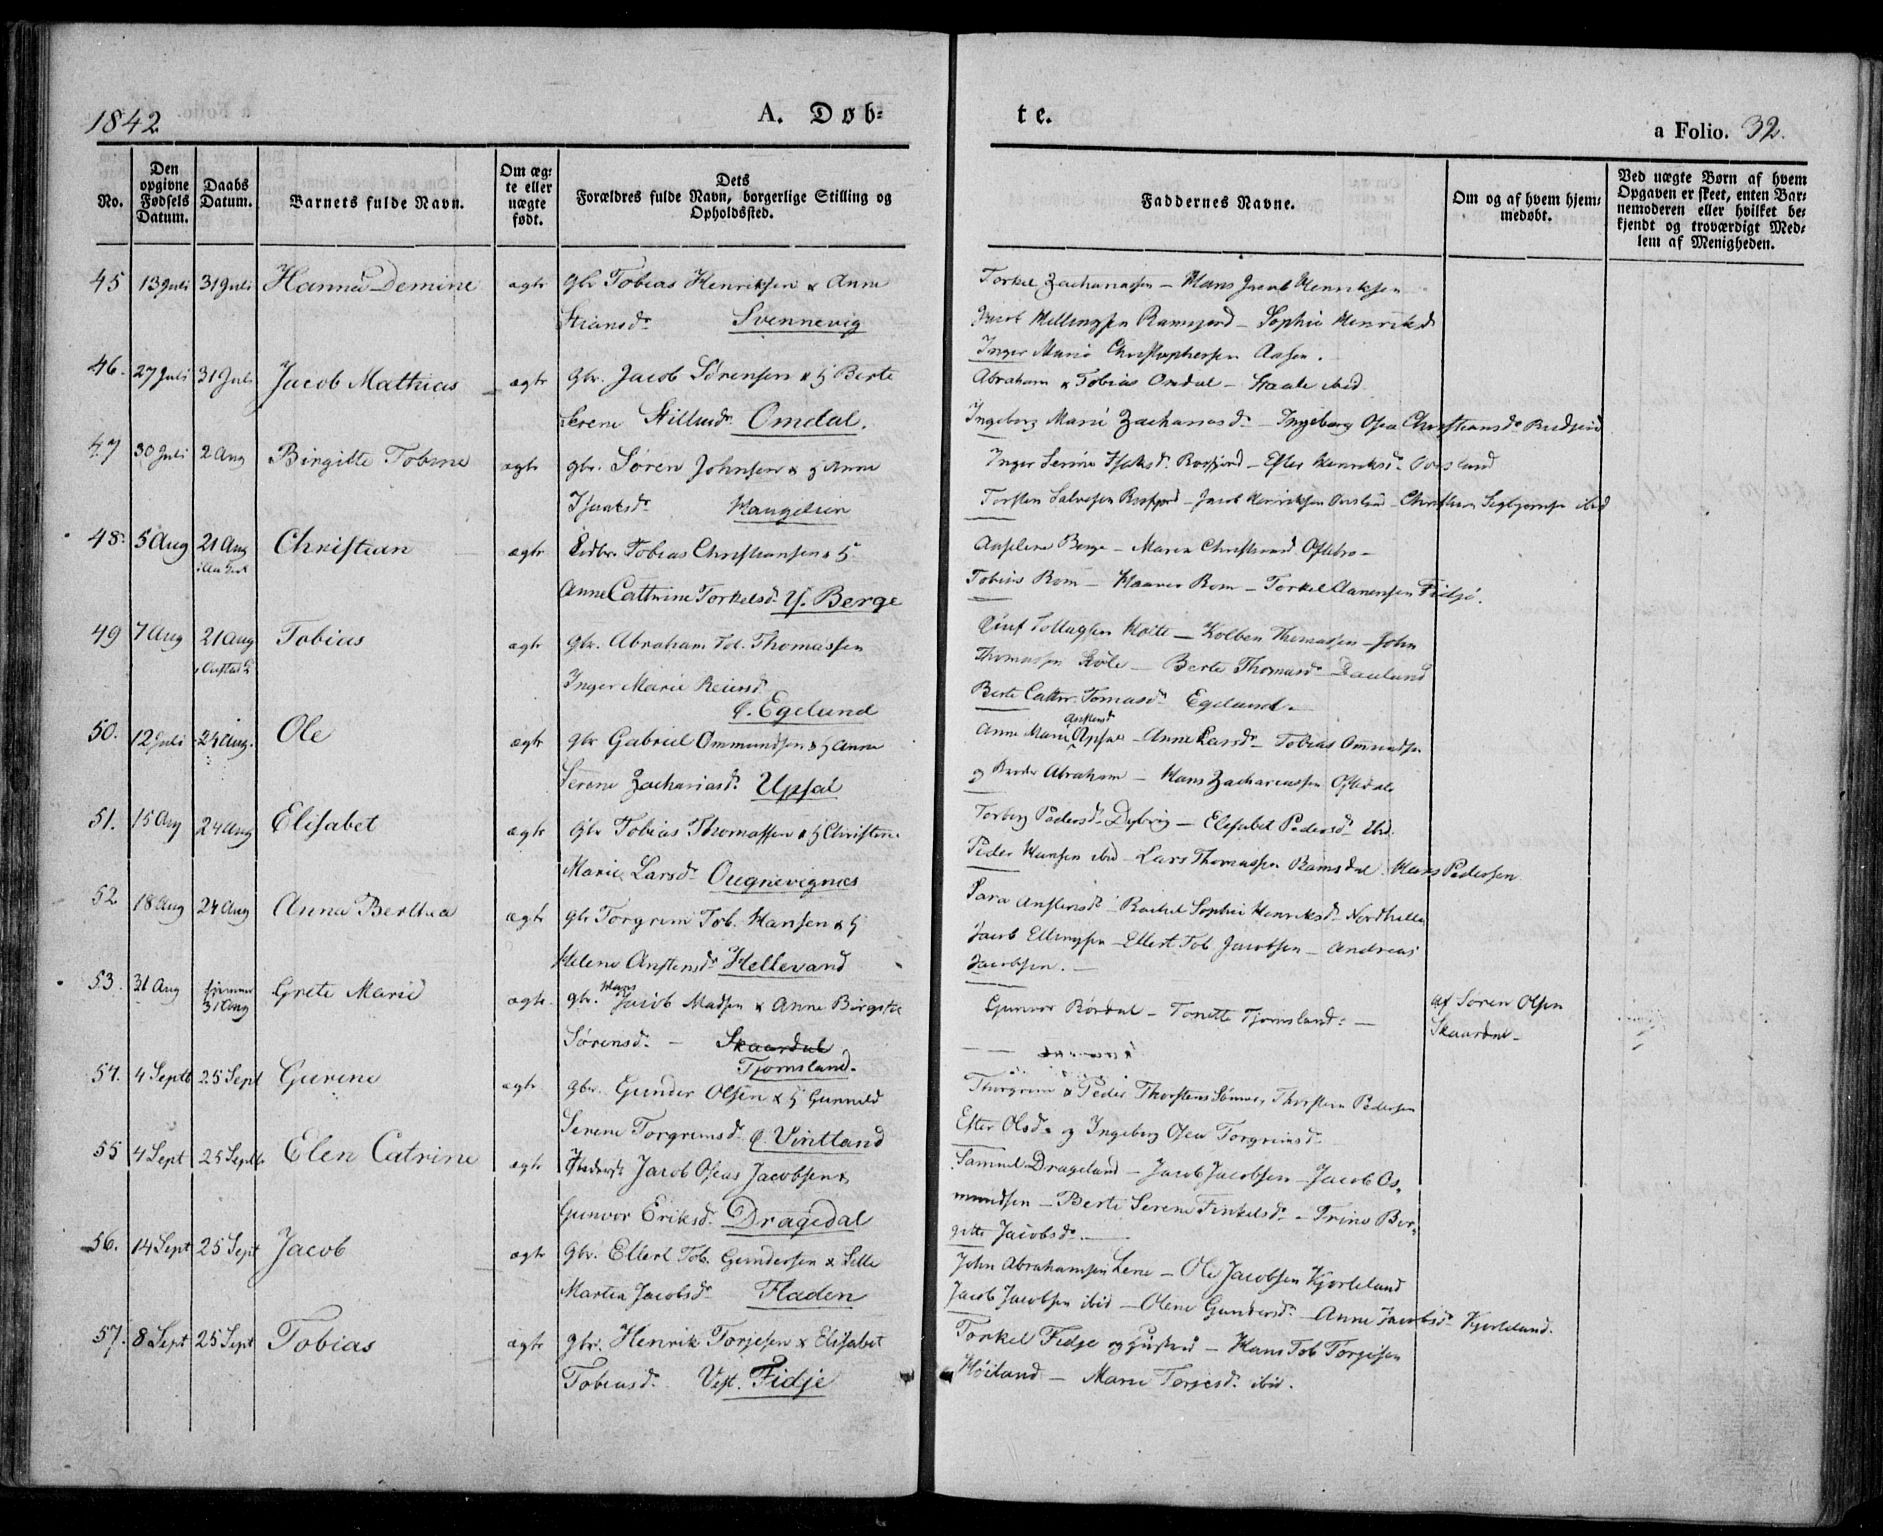 1842
A. Døb-
te.
a Folio. 32.
No.
Den opgivne Fødsels Datum.
Daabs Datum.
Barnets fulde Navn.
Om æg-
te eller
uægte
født.
Dets
Forældres fulde Navn, borgerlige Stilling og
Opholdssted.
Faddernes Navne.
Om og af hvem hjem-
medøbt.
Ved uægte Børn af hvem
Opgaven er skeet, enten Bar-
nemoderen eller hvilket be-
kjendt og troværdigt Med-
lem af Menigheden.
45 13 Juli 31 Juli Hanna Demine ægte gbr Tobias Henriksen & Anne
Stiansdr Svennevig
Torkel Zachariassen – Hans Jacob Henriksen
Jacob Ramsjord – Sophie Henriksd
Inger Marie Christophersen Aasen.
46. 27 Juli 31 Juli Jacob Mathias ægte gbr. Jacob Sørensen & h Berte
Serene Omdal.
Abraham & Tobias Omdal – Staale ibid.
Ingeborg Marie Zachariasdr – Ingeborg Osea Christiansdr
47 30 Juli 2 Aug Birgitte Tobine ægte gbr. Søren Johnsen & h Anne
Haugelien
Inger Serine – Ester Henriksdr
Torsten Salvesen – Jacob Henriksen – Christian ibid
48. 5 Aug 21 Aug Christian ægte Tobias Christiansen & h.
Anne Cathrine Torkelsdr Y. Berge
Anselene Berge – Maren Oftebro –
Tobias Rom – Rom – Torkel Aanensen Fidje.
49 7 Aug 21 Aug Tobias ægte gbr. Abraham Tol. Thomassen
Inger Marie Reiersd
Ø. Egeland
Holte – Kolben Thomassen – John
Thomassen – Berte Thomasdr
Berte Cathr. Tomasdr Egeland.
50. 12 Juli 24 Aug. Ole ægte gbr Gabriel Ommundsen & h Anne
Serene Zachariasdr Upsal
Anne Marie Upsal – Anne Larsdr – Tobias Omundsen
og Broder Abraham – Hans Zachariassen Oftedal
51. 15 Aug 24 Aug Elisabet ægte gbr Tobias Thomassen & h Christine
Marie Larsdr Ougnevignæs
Torborg Pedersdr Dybvig – Elisabet Pedersdr ibid.
Peder Hansen ibid – Lars Thomassen Ramsdal. Hans Pedersen
52 18 Aug 24 Aug Anna Berthea ægte gbr Torgrim Tob. Hansen & h
Helene Anstensdr Hellevand
Sara Anstensdr – Rachel Sophie Henriksdr Nordhelle
Jacob Ellingsen – Ellert Tob Jacobsen – Andreas
Jacobsen. –
53. 31 Aug hjemme 31 Aug Grete Marie ægte. gbr. Hans Jacob Madsen & Anne Birgitte
Sørensdr – Skaardal
Tjomsland.
Gunvor Rørdal – Tonette Tjomsland: –
af Søren Olsen
Skaardal –
54. 4 Septb 25 Sept Gurine ægte gbr. Gunder Olsen & h Gunneld
Serene Torgrimsdr Ø. Vintland
Thorgrim & Peder Thorstens Sønner, Thorsten Pedersen
Ester Olsdr og Ingeborg Osea Torgrimsdr
55 4 Sept 25 Septb Elen Catrine ægte Jacob Oseas Jacobsen &
Gunvor Eriksdr. Dragedal
Samuel Drageland – Jacob Jacobsen – Jacob Os-
mundsen – Berte Serene Tinkelsdr – Trine Bir-
gitte Jacobsdr
56. 14 Sept 25 Sept Jacob ægte gbr. Ellert Tob. Gundersen & Sille
Martea Jacobsdr Fladen
John Abrahamsen Lene – Ole Jacobsen Kjørleland
Jacob Jacobsen ibid – Olene Gundersdr – Anne Jacobsdr Kjørleland.
57. 8 Sept 25 Sept Tobias ægte gbr. Henrik Torjesen & Elisabet
Tobiasdr. Vest. Fidje
Torkel Fidje og – Hans Tob Torjesen
Høiland – Maren Torjesdr ibid.